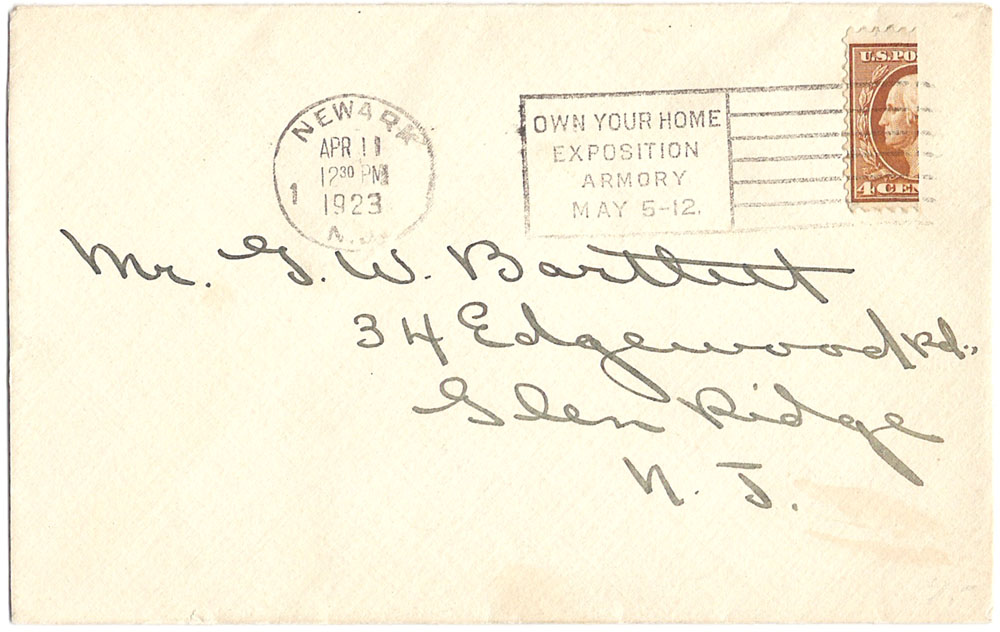 NEWARK
APR 11
12 30 PM
1
1923
N.J.
OWN YOUR HOME
EXPOSITION
ARMORY
MAY 5-12.
U.S.PO
4 CEN
Mr. G. W. Bartlett
34 Edgewood Rd.,
Glen Ridge
N. J.